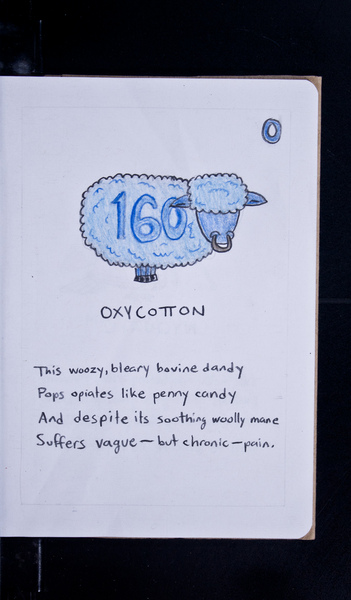 O
160
OXYCOTTON
This woozy, bleary bovine dandy
Pops opiates like penny candy
And despite its soothing woolly mane
Suffers vague — but chronic — pain.